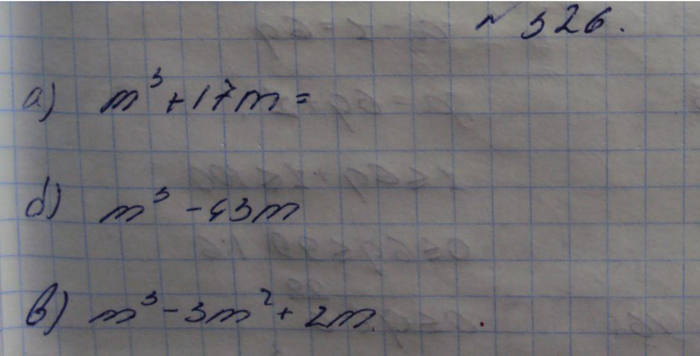 № 326.
а) m³ + 17m =
б) m³ - 43m
в) m³ - 3m² + 2m.